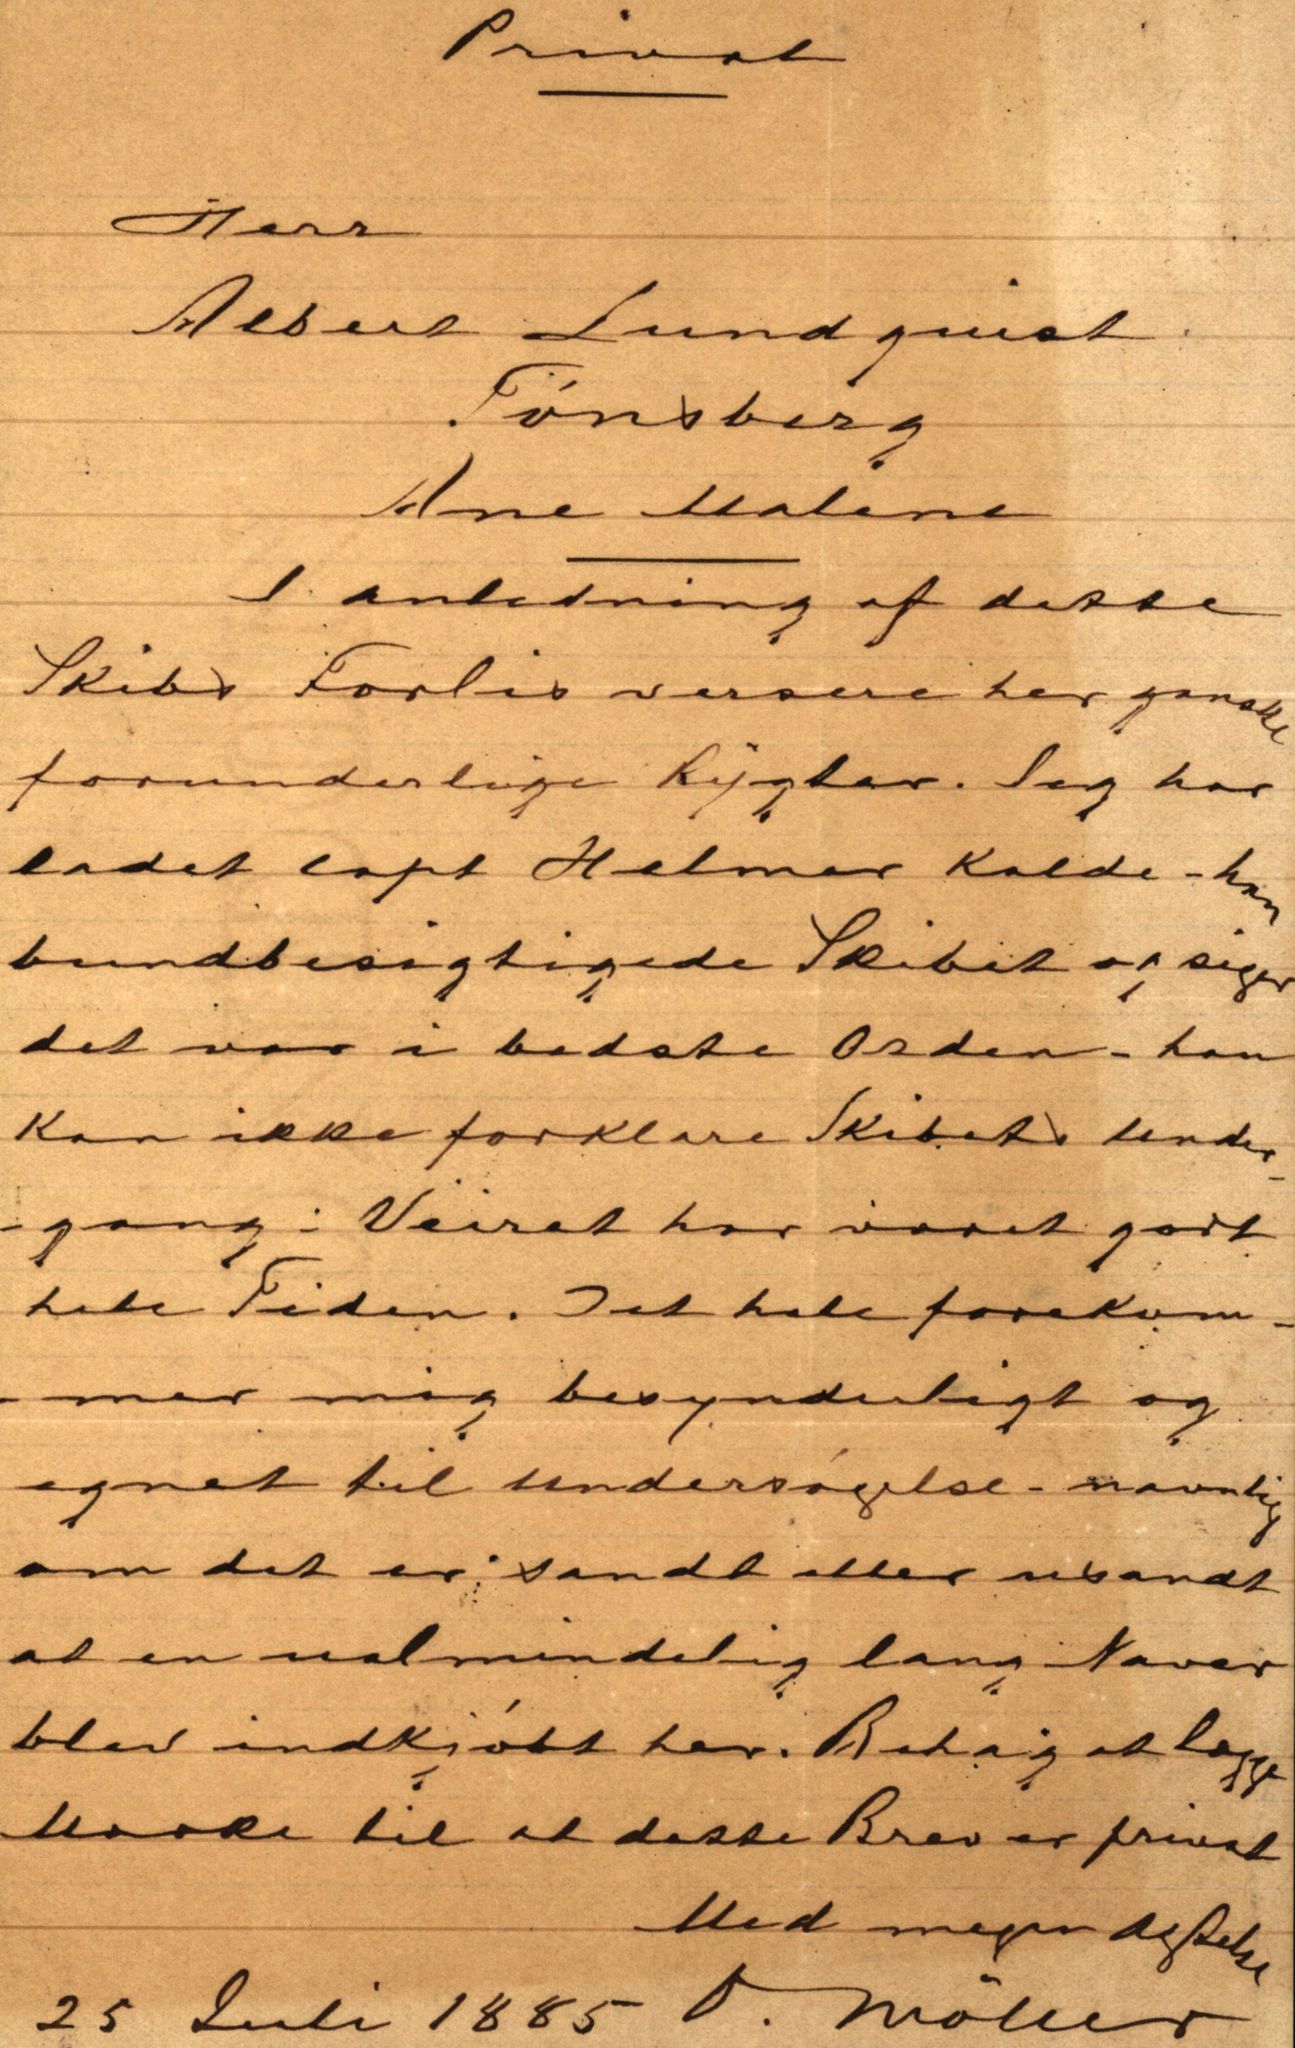 Privat
Herr
Albert Lundquist
Tönsberg
Ane Malene
I anledning af dette
Skibs Forlis versere her ganske
forunderlige Rygter. Jeg har
ladet capt Helmer Kalde - han
bundbesigtigede Skibet og siger
det var i bedste Orden - han
Kan ikke forklare Skibets Under-
-gang: Veiret har været godt
hele Tiden. Det hele forekom-
-mer mig besynderligt og
egnet til Undersøgelse - navnlig
om det er sandt eller usandt
at en ualmindelig lang Naver
blev indkjøbt her. Behag at lægge
Mærke til at dette Brev er privat
Med megen Agtelse
25 Juli 1885 Möller